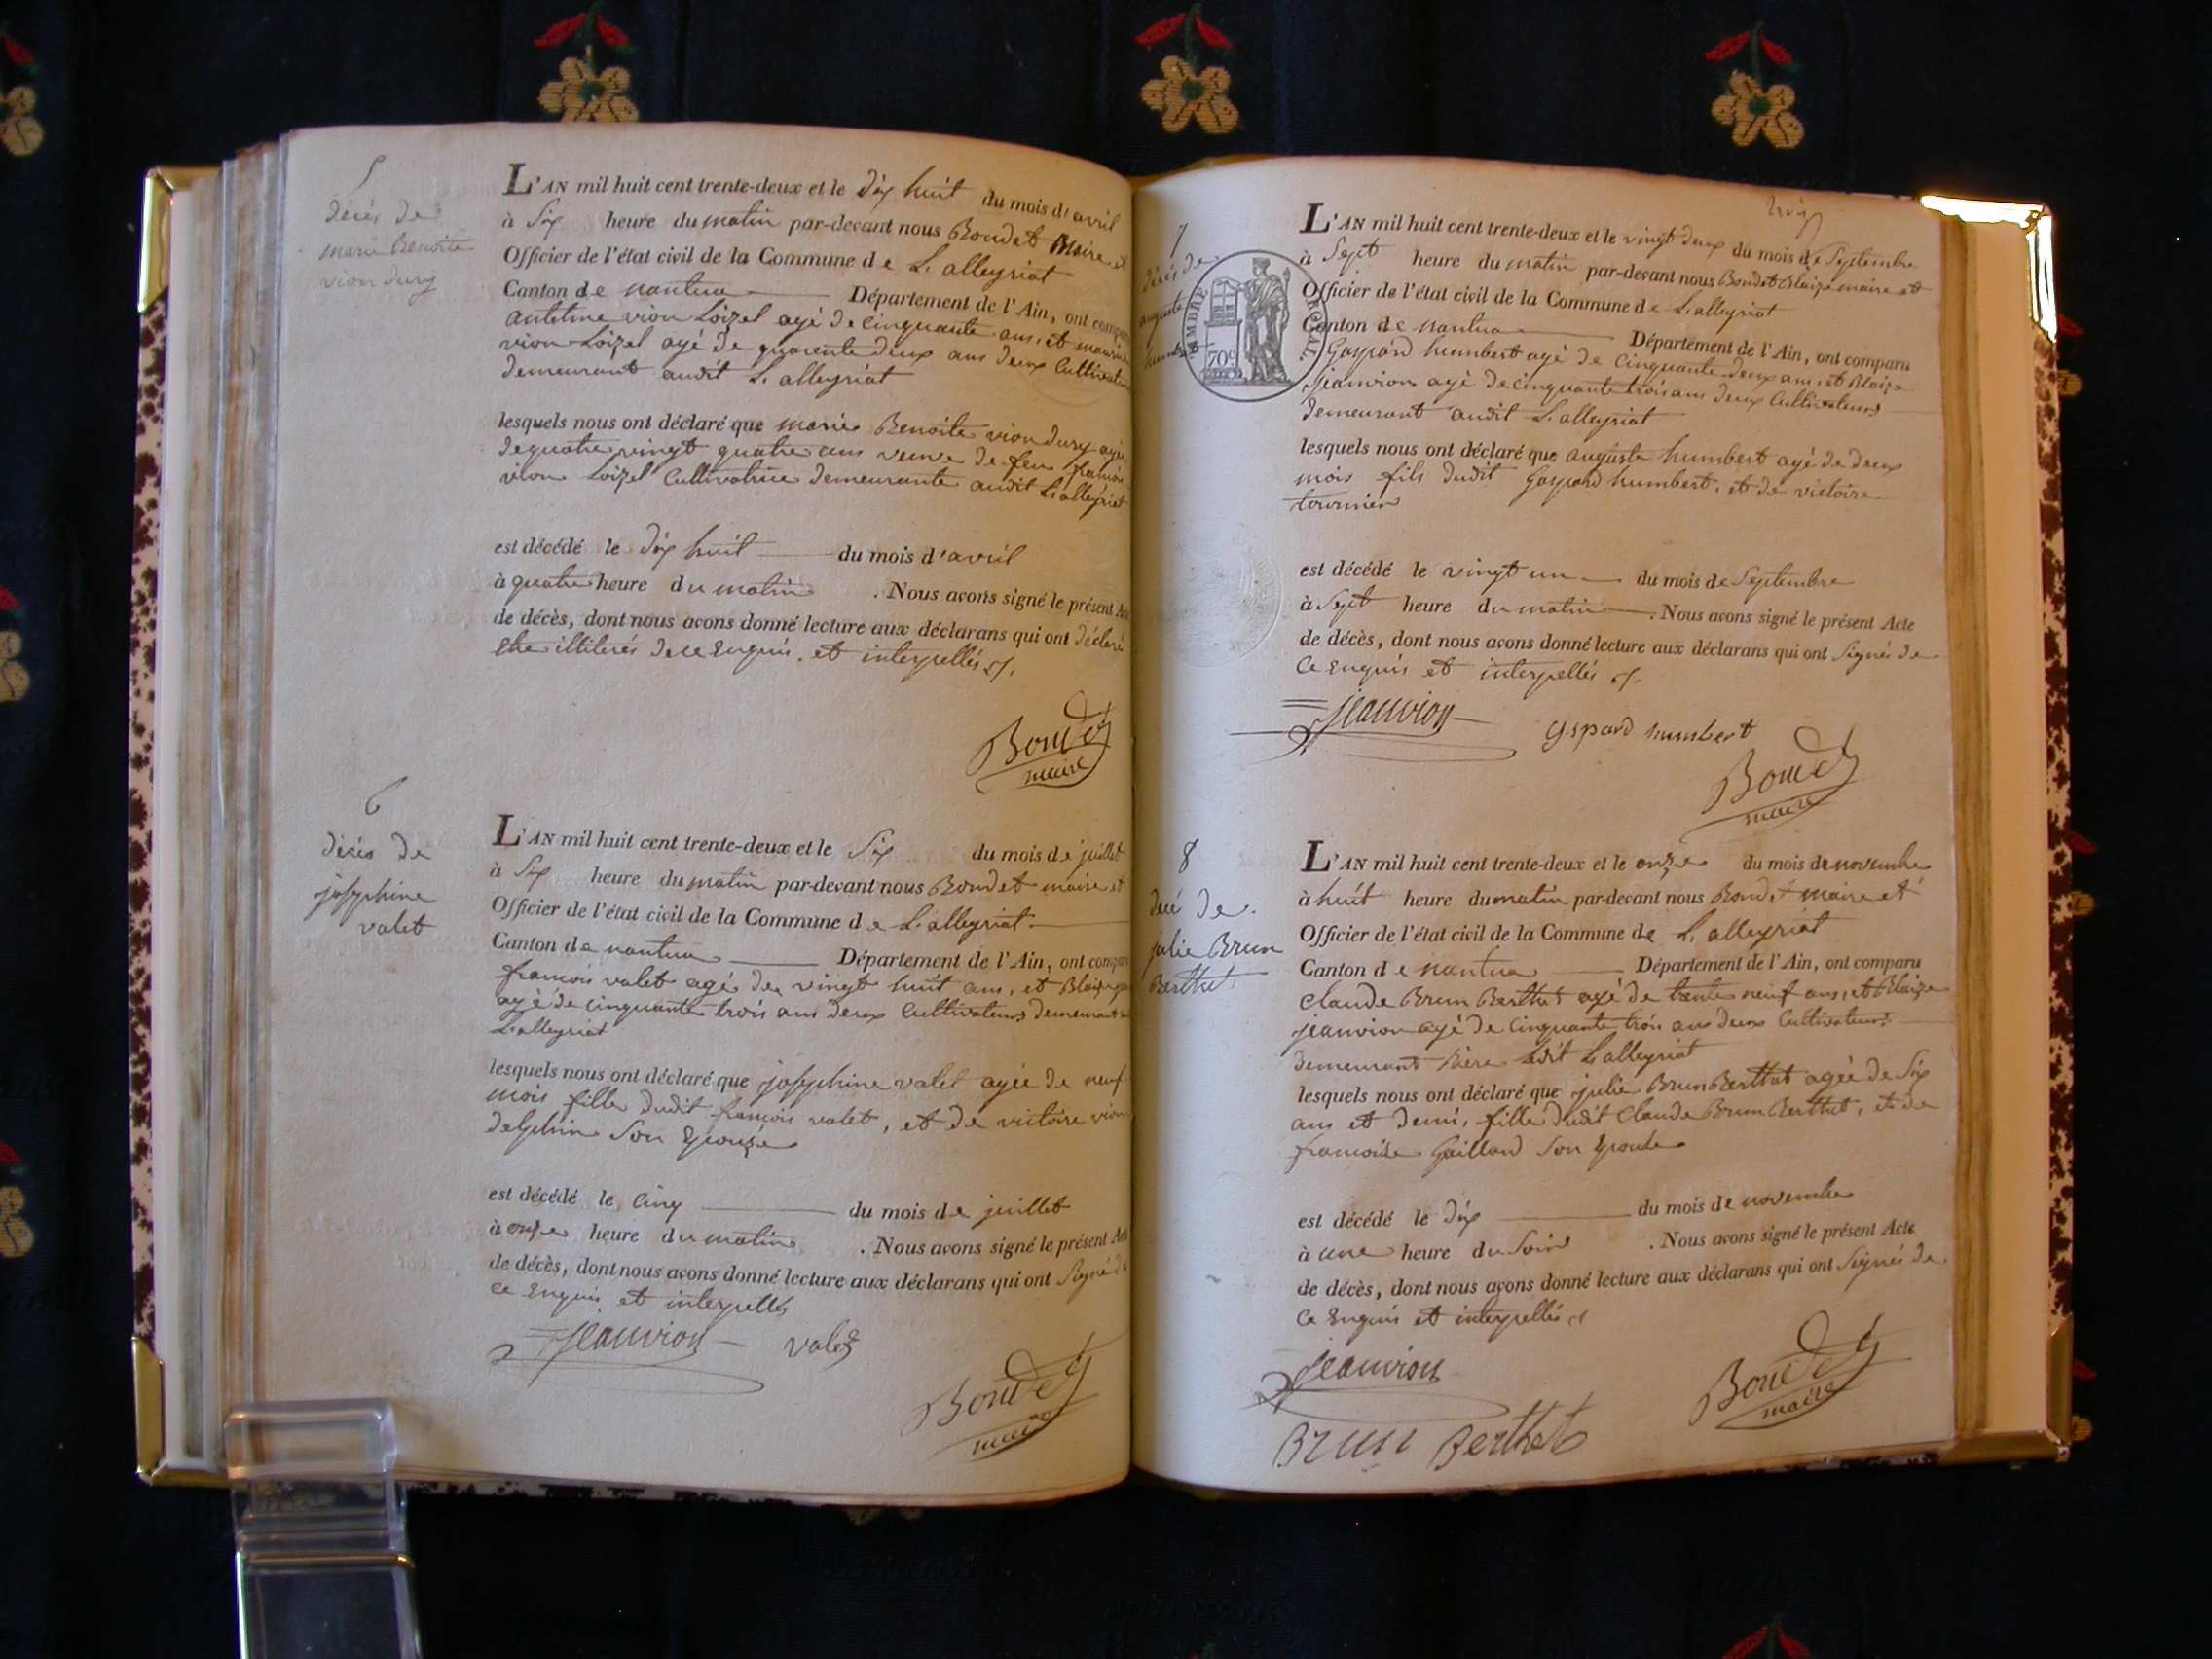 5
décès de
marie Benoite
vion dury
L'AN mil huit cent trente-deux et le dix huit du mois d'avril
à Six heure du matin par-devant nous Boudet Maire et
Officier de l'état civil de la Commune de L'alleyriat
Canton de nantua Département de l'Ain, ont
antelme vion Loizel agé de cinquante ans, et
vion Loizel agé de quarente deux ans deux Cultivateurs
demeurant audit L'alleyriat
lesquels nous ont déclaré que marie Benoite vion dury agée
de quatre vingt quatre ans veuve de feu
vion Loizel Cultivatrice demeurante audit L'alleyriat
est décédé le dix huit du mois d'avril
à quatre heure du matin . Nous avons signé le présent Acte
de décès, dont nous avons donné lecture aux déclarans qui ont déclaré
Etre illiterés de ce Enquis. et interpellés
Boudet
maire
6
décés de
josephine
valet
L'AN mil huit cent trente-deux et le Six du mois de juillet
à Six heure du matin par-devant nous Boudet maire et
Officier de l'état civil de la Commune de L'alleyriat
Canton de nantua Département de l'Ain, ont
francois valet agé de vingt huit ans, et Blaize
agé de cinquante trois ans deux Cultivateurs demeurant
L'alleyriat
lesquels nous ont déclaré que josephine valet agée de neuf
mois fille dudit francois valet, et de victoire vion
delphin Son Epouze
est décédé le cinq du mois de juillet
à onze heure du matin . Nous avons signé le présent Acte
de décès, dont nous avons donné lecture aux déclarans qui ont Signé de
ce Enquis et interpellés
jeanvion valet
Boudet
maire
7
décés de
auguste
humbert
TIMBRE ROYAL
70c
L'AN mil huit cent trente-deux et le vingt deux du mois de Septembre
à Sept heure du matin par-devant nous Boudet Blaize maire et
Officier de l'état civil de la Commune de L'alleyriat
Canton de nantua Département de l'Ain, ont comparu
Gaspard humbert agé de cinquante deux ans, et Blaize
jeanvion agé de cinquante trois ans deux Cultivateurs
demeurant audit L'alleyriat
lesquels nous ont déclaré que auguste humbert agé de deux
mois fils dudit Gaspard humbert, et de victoire
tournier
est décédé le vingt un du mois de Septembre
à Sept heure du matin . Nous avons signé le présent Acte
de décès, dont nous avons donné lecture aux déclarans qui ont Signés de
Ce Enquis et interpellés
jeanvion gspard humbert
Boudet
maire
8
decé de
julie Brun
Berthet
L'AN mil huit cent trente-deux et le onze du mois de novembre
à huit heure du matin par-devant nous Boudet maire et
Officier de l'état civil de la Commune de L'alleyriat
Canton de nantua Département de l'Ain, ont comparu
Claude Brun Berthet agé de trente neuf ans, et Blaize
jeanvion agé de cinquante trois ans deux Cultivateurs
demeurant L'alleyriat
lesquels nous ont déclaré que julie Brun Berthet agée de Six
ans et demi, fille dudit Claude Brun Berthet, et de
francoise Gaillard Son Epouse
est décédé le dix du mois de novembre
à une heure du Soir . Nous avons signé le présent Acte
de décès, dont nous avons donné lecture aux déclarans qui ont Signés de
Ce Enquis et interpellés
jeanvion
Boudet
maire
Brun Berthet